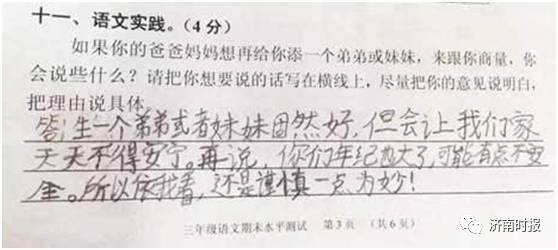 十一、语文实践。(4分)
如果你的爸爸妈妈想再给你添一个弟弟或妹妹，来跟你商量，你
会说些什么？请把你想要说的话写在横线上，尽量把你的意见说明白，
把理由说具体。
答：生一个弟弟或者妹妹固然好，但会让我们家
天天不得安宁。再说，你们年纪大了，可能有点不安
全。所以依我看，还是谨慎一点为妙！
三年级语文期末水平测试 第3页 (共6页)
济南时报